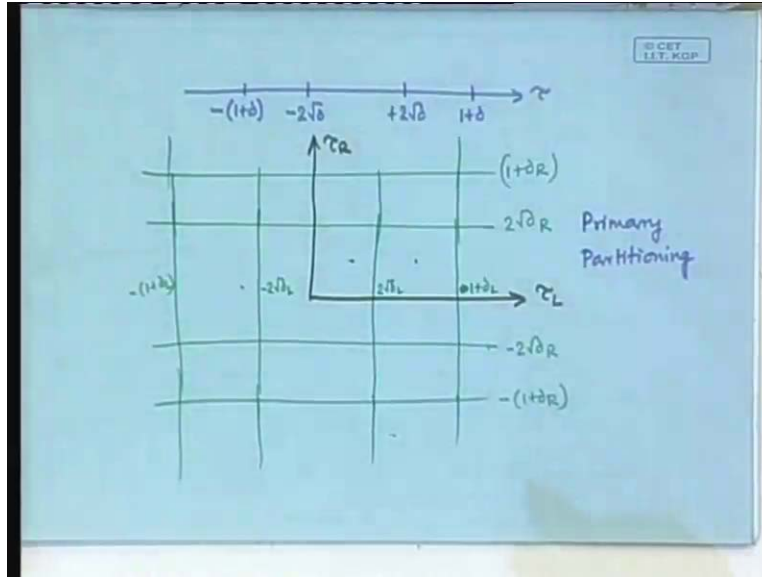 © CET
I.I.T. KGP
-(1+∂) -2√∂ +2√∂ 1+∂ τ
τR
(1+∂R)
2√∂R
Primary
Partitioning
-(1+∂L) -2√∂L 2√∂L 1+∂L τL
-2√∂R
-(1+∂R)